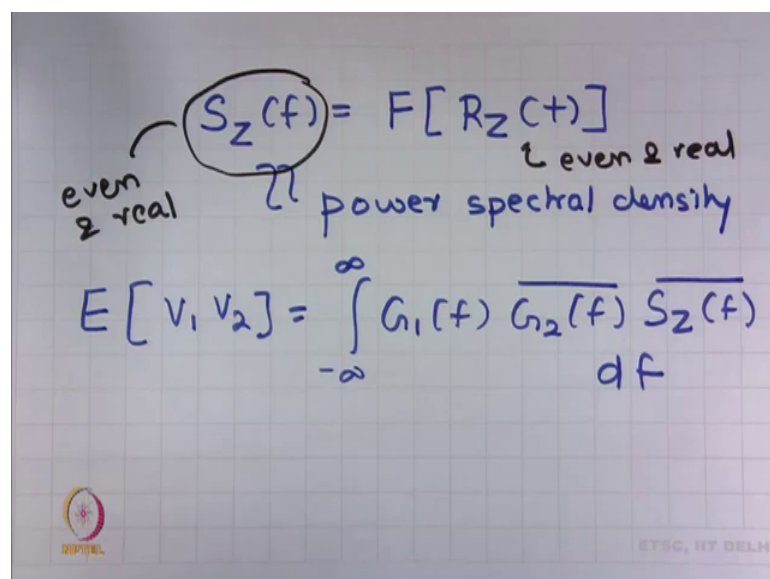 S_Z(f) = F[R_Z(t)]
even & real
even & real
power spectral density
E[V₁ V₂] = ∫_{-∞}^{∞} G₁(f) \overline{G₂(f)} \overline{S_Z(f)}
df
NPTEL
ETSC, IIT DELH